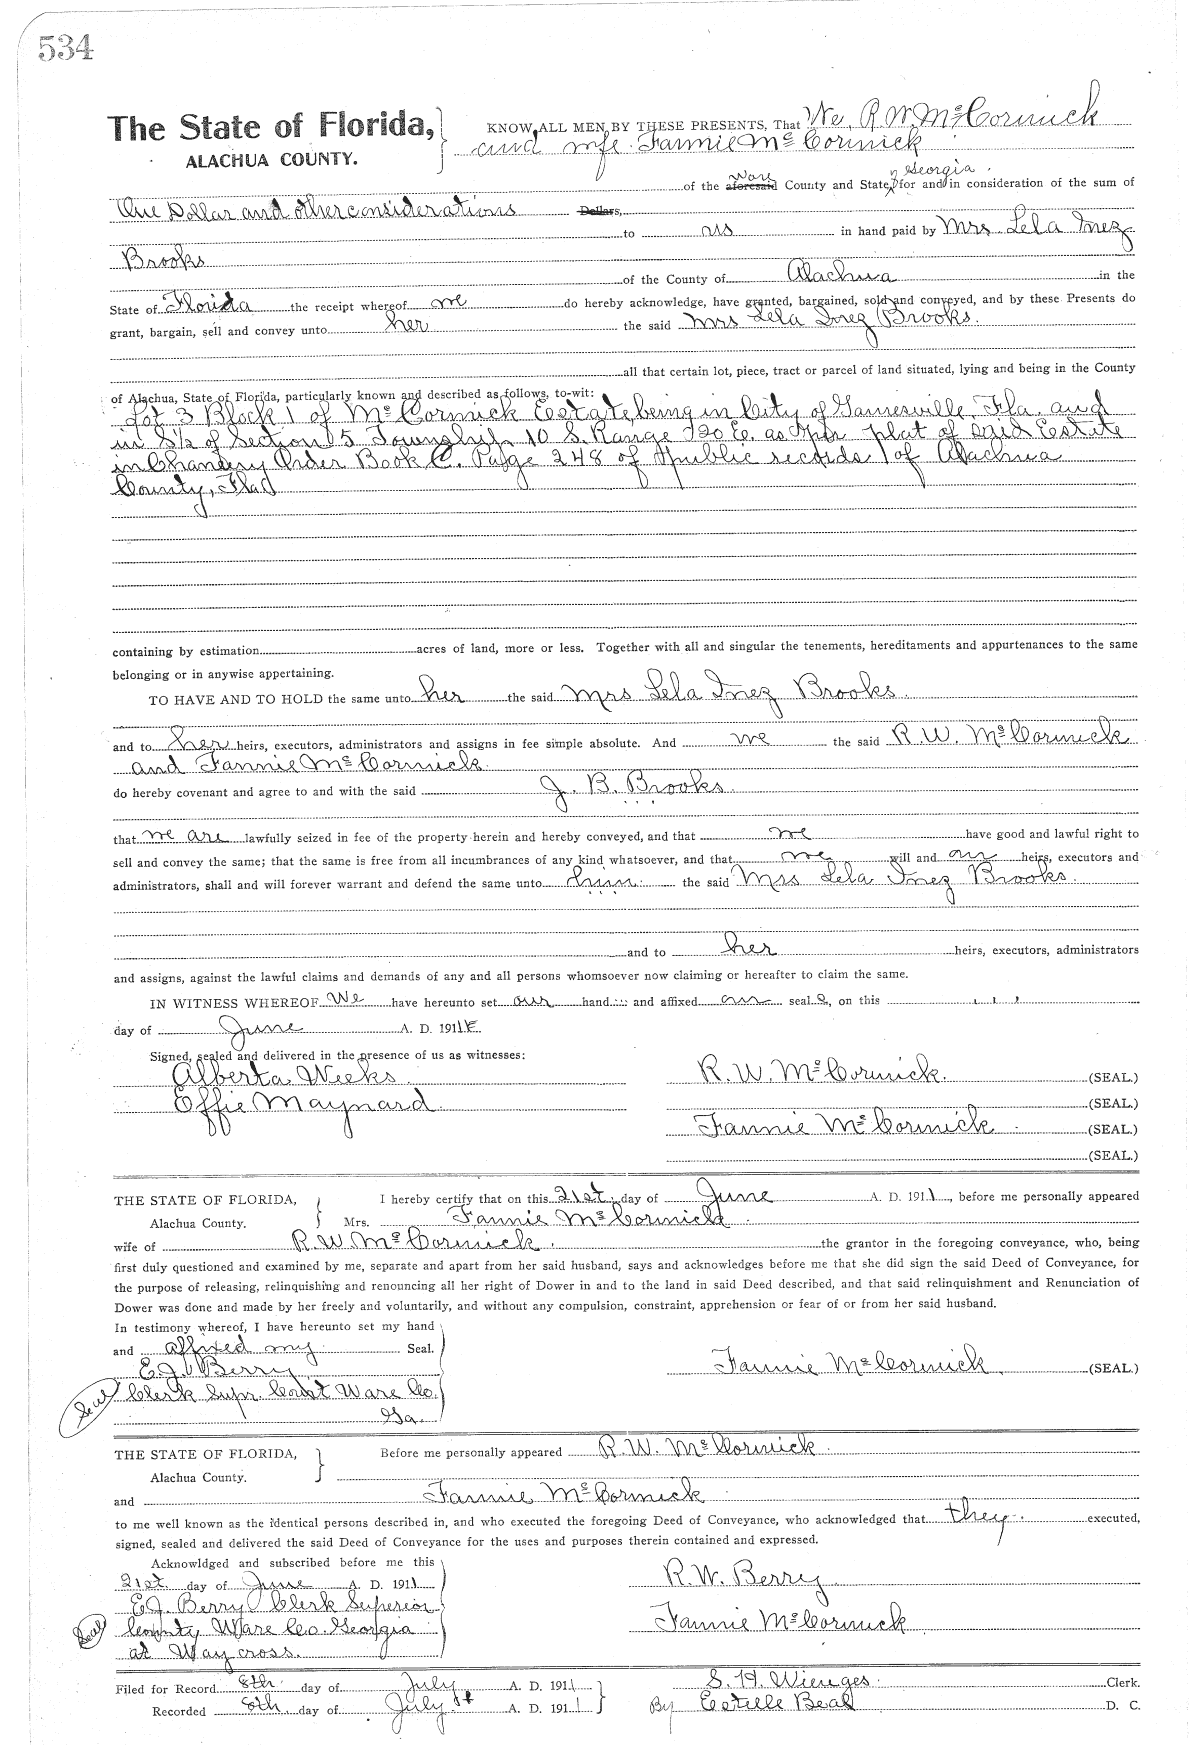 534
The State of Florida, KNOW ALL MEN BY THESE PRESENTS, That We, R W McCormick
ALACHUA COUNTY. and wife Fannie McCormick
Ware Georgia
of the aforesaid County and State, for and in consideration of the sum of
One Dollar and other considerations Dollars,
to us in hand paid by Mrs Lela Inez
Brooks
of the County of Alachua in the
State of Florida the receipt whereof we do hereby acknowledge, have granted, bargained, sold and conveyed, and by these Presents do
grant, bargain, sell and convey unto her the said Mrs Lela Inez Brooks.
all that certain lot, piece, tract or parcel of land situated, lying and being in the County
of Alachua, State of Florida, particularly known and described as follows, to-wit:
Lot 3 Block 1 of McCormick Estate, being in City of Gainesville, Fla. and
in S½ of Section 5 Township 10 S. Range 20 E. as per plat of said Estate
in Chancery Order Book C. Page 248 of public records of Alachua
County, Fla
containing by estimation acres of land, more or less. Together with all and singular the tenements, hereditaments and appurtenances to the same
belonging or in anywise appertaining.
TO HAVE AND TO HOLD the same unto her the said Mrs Lela Inez Brooks.
and to her heirs, executors, administrators and assigns in fee simple absolute. And we the said R. W. McCormick
and Fannie McCormick
do hereby covenant and agree to and with the said J. B. Brooks.
that we are lawfully seized in fee of the property herein and hereby conveyed, and that we have good and lawful right to
sell and convey the same; that the same is free from all incumbrances of any kind whatsoever, and that we will and our heirs, executors and
administrators, shall and will forever warrant and defend the same unto him the said Mrs Lela Inez Brooks.
and to her heirs, executors, administrators
and assigns, against the lawful claims and demands of any and all persons whomsoever now claiming or hereafter to claim the same.
IN WITNESS WHEREOF We have hereunto set our hand and affixed our seal s, on this
day of June A. D. 191
Signed, sealed and delivered in the presence of us as witnesses:
Alberta Weeks R. W. McCormick. (SEAL.)
Effie Maynard. (SEAL.)
Fannie McCormick (SEAL.)
(SEAL.)
THE STATE OF FLORIDA, I hereby certify that on this 21st day of June A. D. 1911, before me personally appeared
Alachua County. Mrs. Fannie McCormick
wife of R. W. McCormick. the grantor in the foregoing conveyance, who, being
first duly questioned and examined by me, separate and apart from her said husband, says and acknowledges before me that she did sign the said Deed of Conveyance, for
the purpose of releasing, relinquishing and renouncing all her right of Dower in and to the land in said Deed described, and that said relinquishment and Renunciation of
Dower was done and made by her freely and voluntarily, and without any compulsion, constraint, apprehension or fear of or from her said husband.
In testimony whereof, I have hereunto set my hand
and affixed my Seal.
E. J. Berry Fannie McCormick (SEAL.)
Seal Clerk Supr. Court Ware Co.
Ga.
THE STATE OF FLORIDA, Before me personally appeared R. W. McCormick
Alachua County.
and Fannie McCormick
to me well known as the identical persons described in, and who executed the foregoing Deed of Conveyance, who acknowledged that they executed,
signed, sealed and delivered the said Deed of Conveyance for the uses and purposes therein contained and expressed.
Acknowldged and subscribed before me this
21st day of June A. D. 1911 R. W. Berry
E. J. Berry Clerk Superior
Seal County Ware Co. Georgia Fannie McCormick
at Waycross.
Filed for Record 8th day of July A. D. 1911 S. H. Wienges Clerk.
Recorded 8th day of July A. D. 1911 By Estelle Beal D. C.